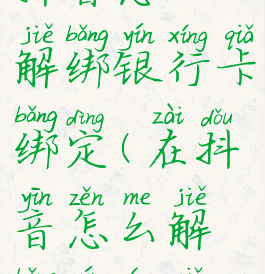 jiě bǎng yín xíng qiǎ
解绑银行卡
bǎng dìng zài dǒu
绑定(在抖
yīn zěn me jiě
音怎么解